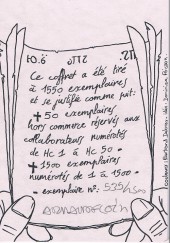 Ce coffret a été tiré
à 1550 exemplaires
et se justifie comme suit:
+ 50 exemplaires
hors commerce réservés aux
collaborateurs numérotés
de HC 1 à HC 50
• 1500 exemplaires
numérotés de 1 à 1500 •
- exemplaire n°: 535/1500